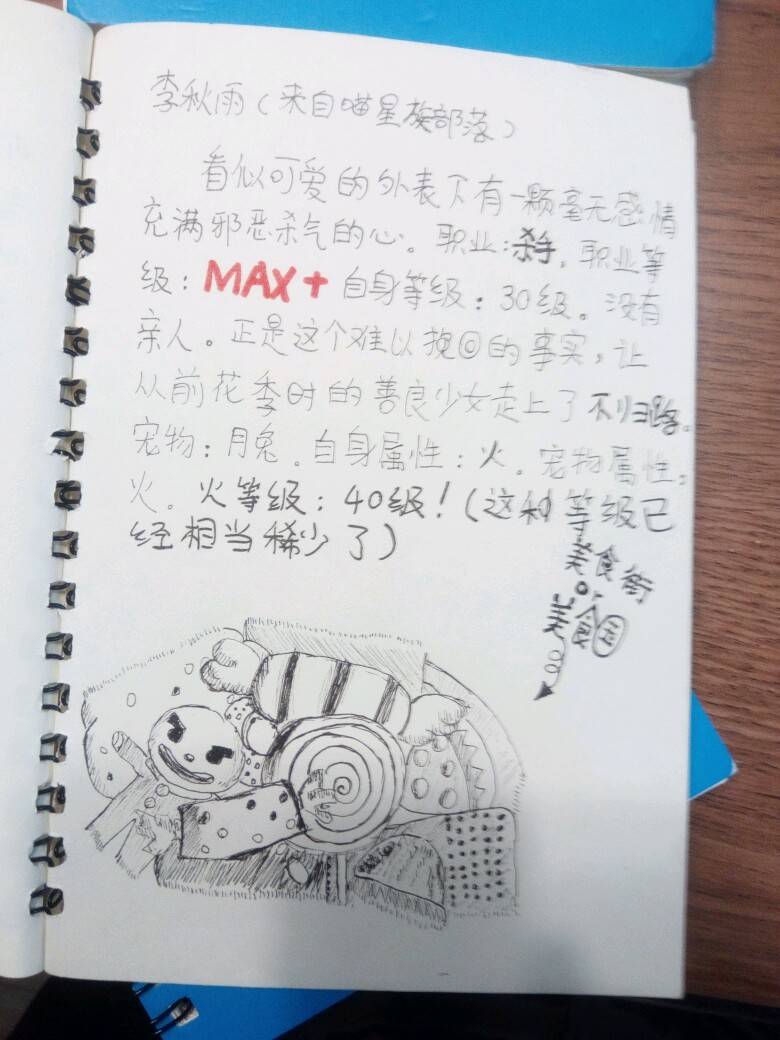 李秋雨(来自喵星族部落)
看似可爱的外表下有一颗毫无感情
充满邪恶杀气的心。职业:杀手,职业等
级:MAX+ 自身等级:30级。没有
亲人。正是这个难以挽回的事实,让
从前花季时的善良少女走上了不归路。
宠物:月兔。自身属性:火。宠物属性:
火。火等级:40级!(这种等级已
经相当稀少了)
美食街
or
美食